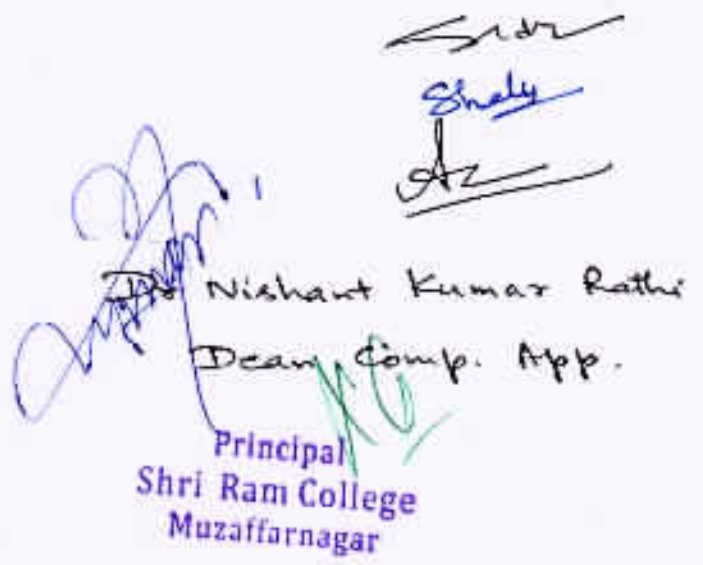 Shaly
Dr Nishant Kumar Rathi
Dean Comp. App.
Principal
Shri Ram College
Muzaffarnagar